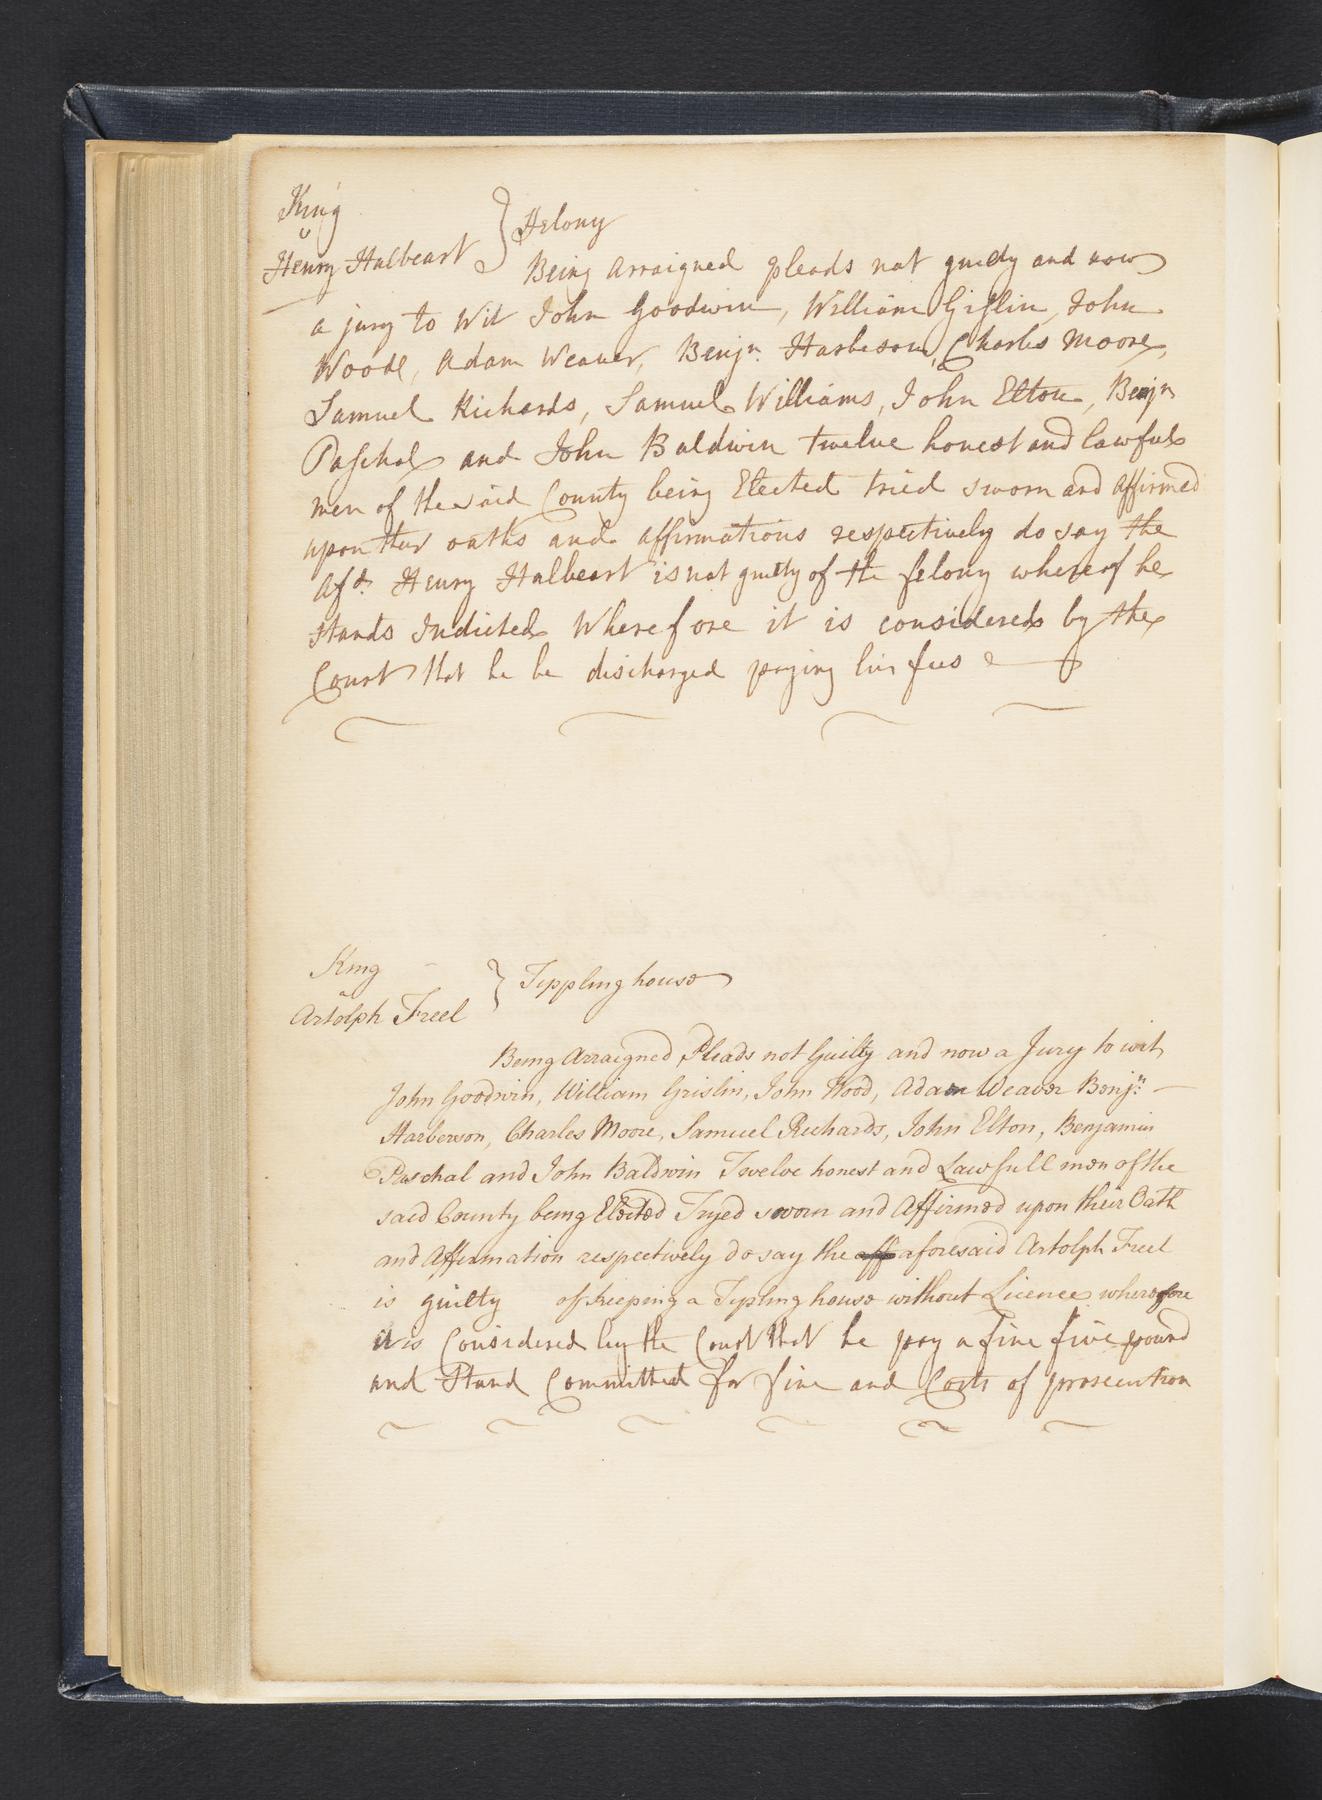 King
v
Henry Halbeart } Felony
Being arraigned pleads not guilty and now
a jury to Wit John Goodwin, William Gislin, John
Wood, Adam Weaver, Benjn. Harbeson, Charles Moore,
Samuel Richards, Samuel Williams, John Elton, Benjn
Paschal and John Baldwin twelve honest and lawful
men of the said County being Elected tried sworn and affirmed
upon their oaths and affirmations respectively do say the
Afd. Henry Halbeart is not guilty of the felony whereof he
Stands Indicted Wherefore it is considered by the
Court that he be discharged paying his fees
King
v
Artolph Freel } Tippling house
Being Arraigned Pleads not Guilty and now a Jury to wit
John Goodwin, William Grislin, John Wood, Adam Weaver Benjn: —
Harberson, Charles Moore, Samuel Richards, John Elton, Benjamin
Paschal and John Baldwin Twelve honest and Lawfull men of the
said County being Elected Tryed sworn and Affirmed upon their Oath
and Affirmation respectively do say the aff aforesaid Artolph Freel
is guilty of keeping a Tipling house without Licence wherefore
it is Considered by the Court that he pay a fine five pound
and Stand Committed for fine and Costs of prosecution